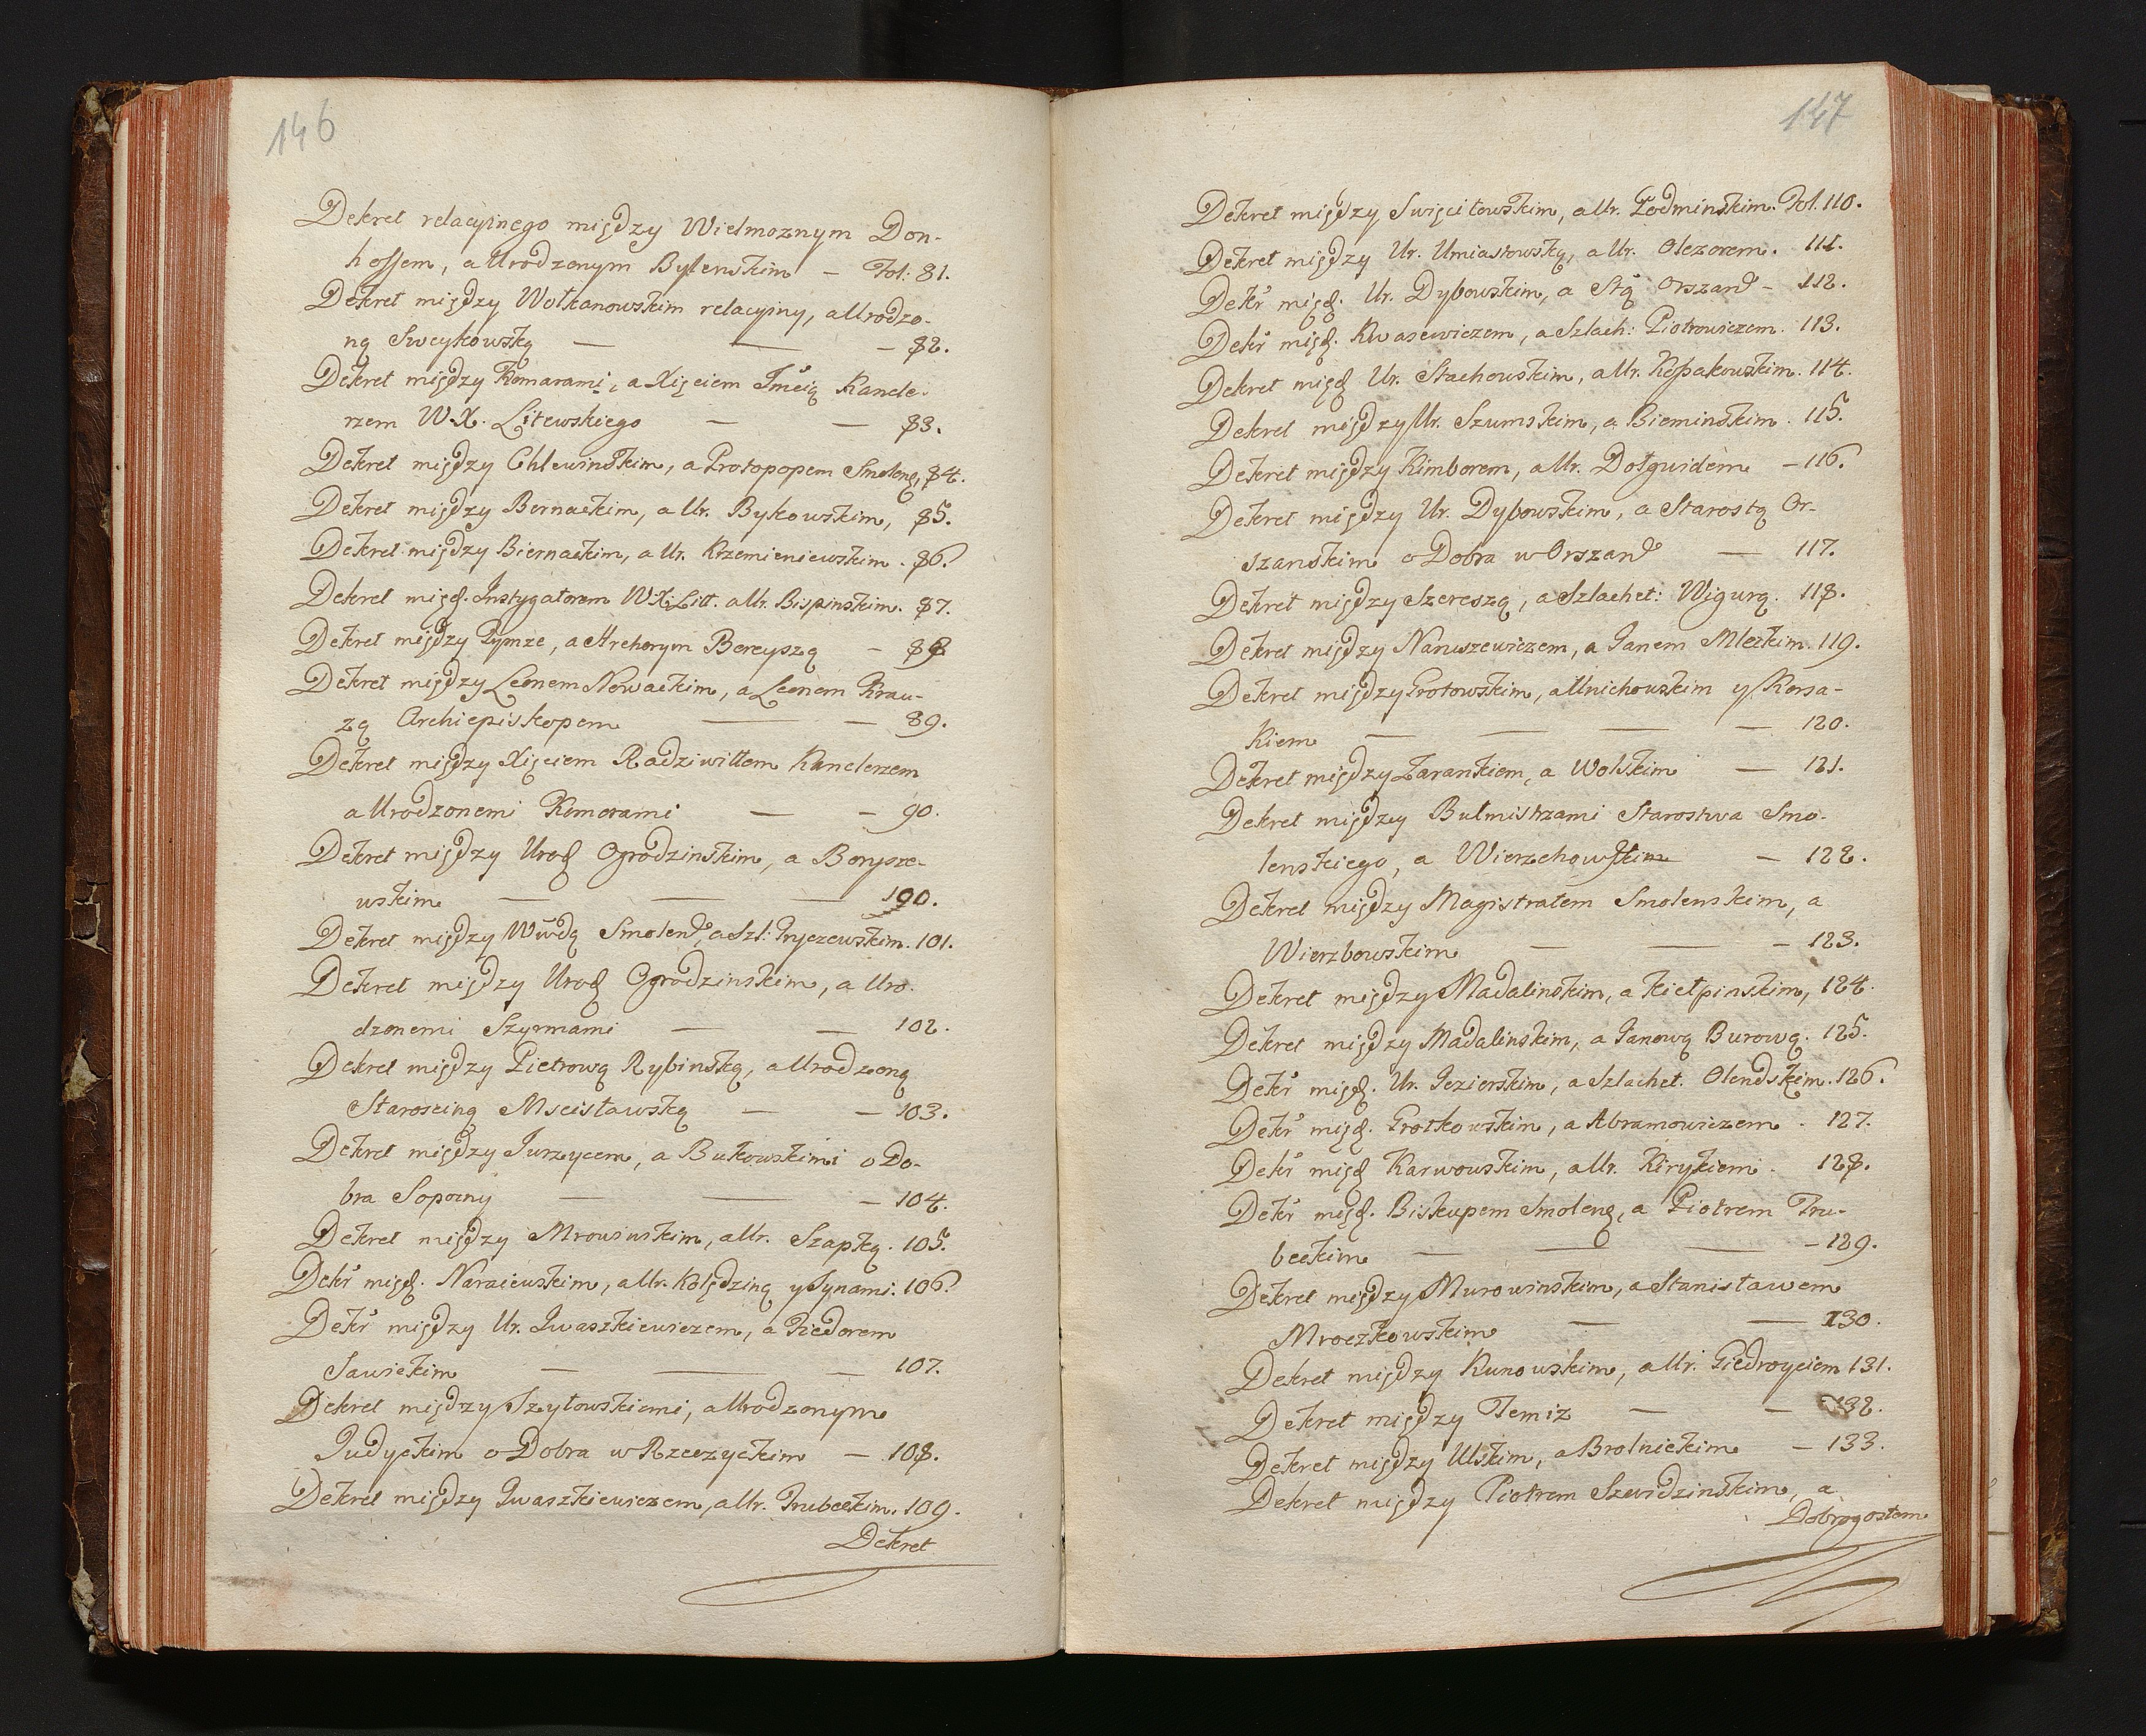 146
Dekret relacyinego między Wielmoznym Don-
hoffem, a Urodzonym Bylenskim – Fol: 81.
Dekret między Wołkanowskim relacyiny, a Urodzo-
ną Swcykowską — — – 82.
Dekret między Komarami, a Xięciem Jmcią Kancle-
rzem W.X. Litewskiego — — 83.
Dekret między Chlewinskim, a Protopopem Smoleń, 84.
Dekret między Bernackim, a Ur. Bykowskim, 85.
Dekret między Biernackim, a Ur. Krzemieniewskim. 86.
Dekret międ. Instygatorem W.X. Litt. a Ur. Bispinskim. 87.
Dekret między Pymze, a Hrehorym Bereyszą – 88
Dekret między Leonem Nowackim, a Leonem Krau-
zą Archiepiskopem — – 89.
Dekret między Xięciem Radziwiłłem Kanclerzem
a Urodzonemi Komorami — – 90.
Dekret między Urod Ogrodzinskim, a Borysze-
wskim — — — 100.
Dekret między Wwdą Smolend, a Szl: Pryczewskim. 101.
Dekret między Urod Ogrodzinskim, a Uro-
dzonemi Szyrmami — — 102.
Dekret między Pietrową Rybinską, a Urodzoną
Starosciną Mscisławską — – 103.
Dekret między Jurzycem, a Bukowskimi o Do-
bra Soporny — — – 104.
Dekret między Mrowinskim, a Ur. Szapką. 105.
Dekr międ. Naraiewskim, a Ur. Kolędziną y Synami. 106.
Dekr między Ur. Iwaszkiewiczem, a Fiedorem
Sawickim — — — 107.
Dekret między Szytowskiemi, a Urodzonym
Judyckim o Dobra w Rzeczyckim — 108.
Dekret między Iwaszkiewiczem, a Ur. Trubeckim. 109.
Dekret
147
Dekret między Swięcitowskim, a Ur. Łodminskim. Fol. 110.
Dekret między Ur. Umiastowską, a Ur. Olezorem. 111.
Dekr międ. Ur. Dybowskim, a Stą Orszand – 112.
Dekr międ. Kwasewiczem, a Szlach: Piotrowiczem. 113.
Dekret międ Ur. Stachowskim, a Ur. Kossakowskim. 114.
Dekret między Ur. Szumskim, a Bieminskim. 115.
Dekret między Kimborem, a Ur. Dołgwidem – 116.
Dekret między Ur. Dybowskim, a Starostą Or-
szanskim o Dobra w Orszand — 117.
Dekret między Szereszą, a Szlachet: Wigurą. 118.
Dekret między Naruszewiczem, a Janem Mleckim. 119.
Dekret między Grotowskim, a Unichowskim y Korsa-
kiem — — — — 120.
Dekret między Zarankiem, a Wolskim — 121.
Dekret między Bulmistrzami Starostwa Smo-
lenskiego, a Wierzchowskim – 122.
Dekret między Magistratem Smolenskim, a
Wierzbowskim — — – 123.
Dekret między Madalinskim, a Kiełpinskim, 124.
Dekret między Madalinskim, a Janową Burową. 125.
Dekr międ. Ur. Jezierskim, a Szlachet. Olendskim. 126.
Dekr międ. Grotkowskim, a Abramowiczem. 127.
Dekr międ Karwowskim, a Ur. Kirykiem. 128.
Dekr międ. Biskupem Smoleng, a Piotrem Tru-
beckim — — — – 129.
Dekret między Murowinskim, a Stanisławem
Mroczkowskim — — 130.
Dekret między Kunowskim, a Ur. Giedroyciem 131.
Dekret między Temiz — – 132.
Dekret między Ulskim, a Brolnickim – 133.
Dekret między Piotrem Szewdzinskim, a
Dobrogostem